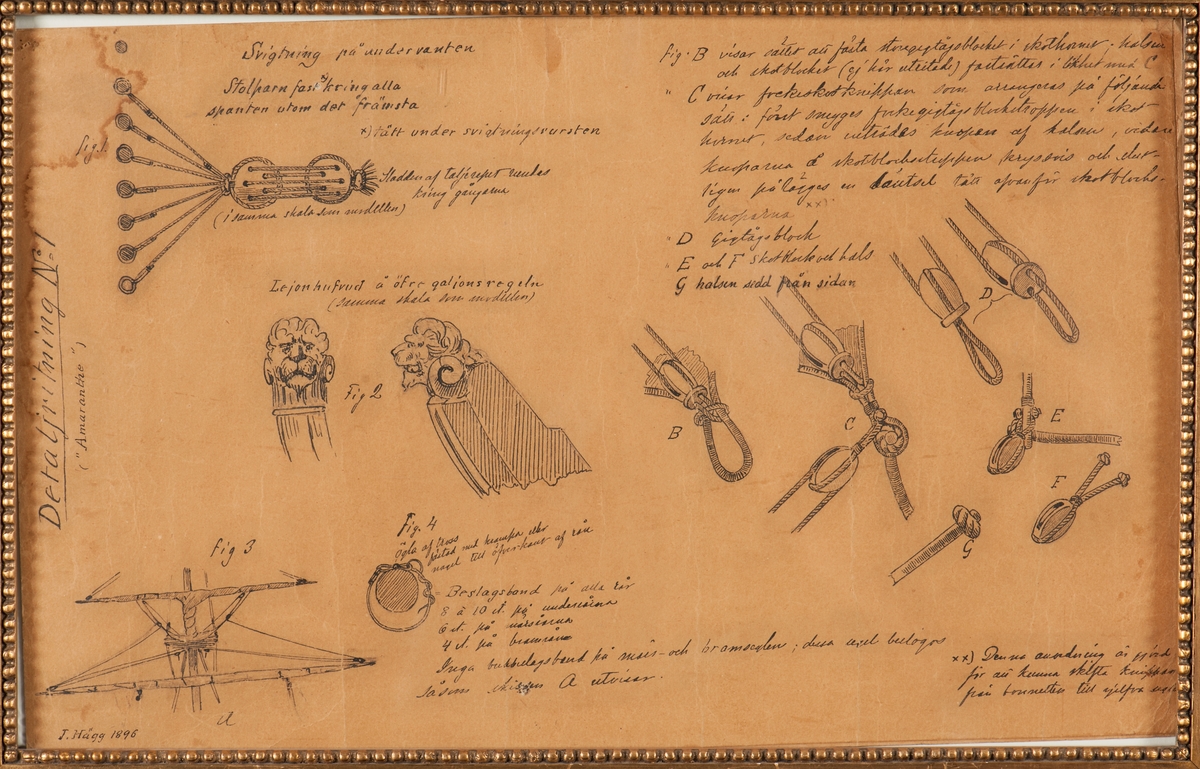 Detaljritning No: 1
("Amaranthe")
Svigtning på undervanten
Stolparn fast kring alla
spanten utom det främsta
x) tätt under svigtningsvursten
fig. 1
Sladden af taljrepet rundas
kring gångarna
(i samma skala som modellen)
Lejonhufvud å öfre galjonsregeln
(samma skala som modellen)
Fig 2
fig 3
A
J. Hägg 1896
Fig. 4
Ögla af tross
fästad med krampa eller
nagel till öfverkant af rån
Beslagsband på alla rår
8 à 10 st. på underrårna
6 st. på märsrårna
4 st. på bramrårna
Inga bukbeslagsband på märs- och bramseglen; dessa
såsom skissen A utvisar.
fig. B visar sättet att fästa storegigtågsblocket i skothornet; halsen
och skotblocket (ej här utritad) fastsättes i likhet med C
" C visar fockeskotknippan som arrangeras på följande
sätt: först smyges fockegigtågsblockstroppen i skot
hornet, sedan knopen af halsen, sedan
knoparna å skotblockstroppen kryssvis och slut-
ligen pålägges en läntsel tätt ofvanför skotblocks-
knoparna xx)
" D Gigtågsblock
" E och F skotblock och hals
G halsen sedd från sidan
B
C
D
E
F
G
xx) Denna anordning är gjord
för att kunna skifta knippan
från bonnetten till sjelfva